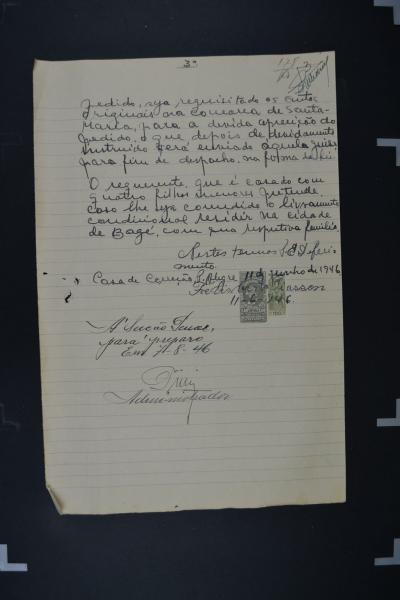 3º
178
pedido, seja requisitado os autos
originais na Comarca de Santa-
Maria, para a devida apreciação do
pedido, o que depois de devidamente
instruido será enviado aquele Juizo
para fim de despacho, na forma da lei.
O requerente, que é casado com
quatro filhos menores, pretende,
caso lhe seja concedido o livramento
condicional residir na cidade
de Bagé, com sua respetiva familia.
Nestes termos P. Deferi-
mento.
Casa de Correção P. Alegre 11 de junho de 1946
11-6-946.
A Secção Penal,
para preparo
Em 7-8-46
Administrador